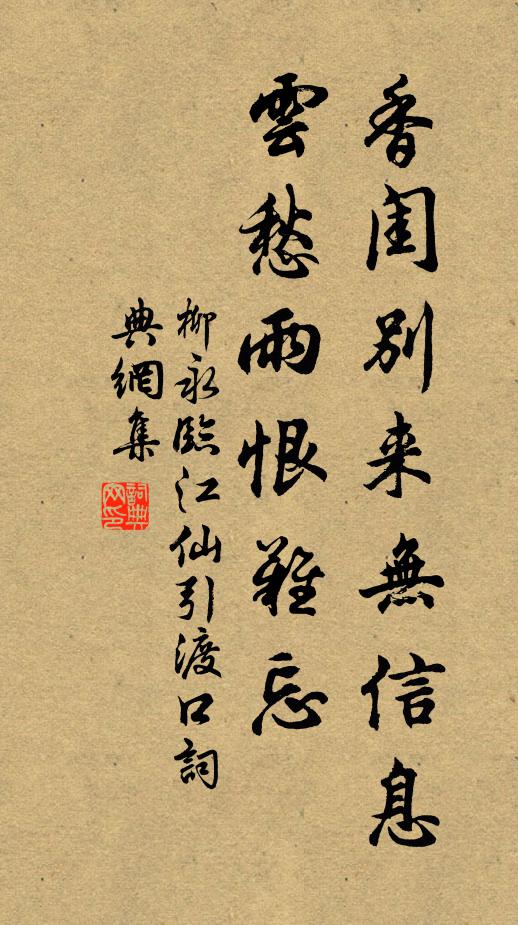 香閨別来無信息
雲愁雨恨難忘
柳永臨江仙引渡口詞
典網集
詞典
网印